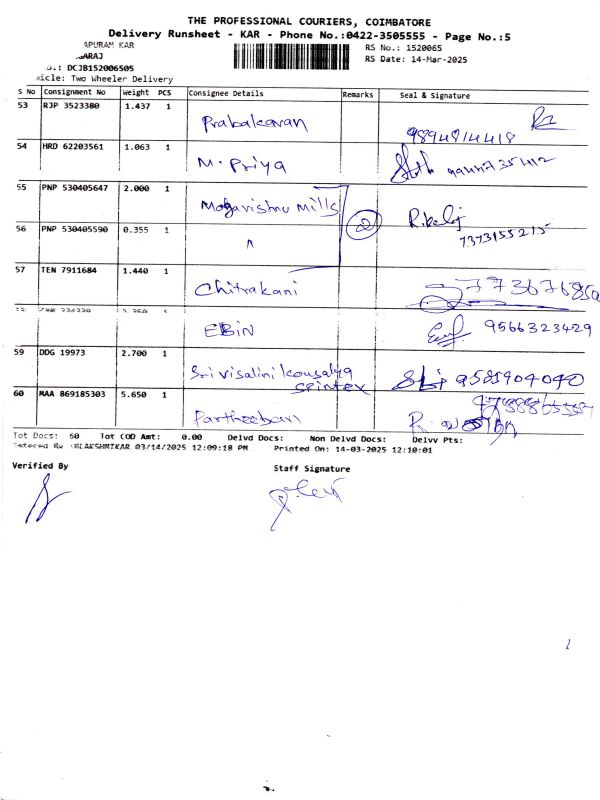 THE PROFESSIONAL COURIERS, COIMBATORE
Delivery Runsheet - KAR - Phone No.:0422-3505555 - Page No.:5
APURAM KAR
GARAJ
.: DCJB152006505
icle: Two Wheeler Delivery
RS No.: 1520065
RS Date: 14-Mar-2025
S No Consignment No Weight PCS Consignee Details Remarks Seal & Signature
53 RJP 3523380 1.437 1 Prabakaran 9894814418
54 HRD 62203561 1.063 1 M. Priya
55 PNP 530405647 2.000 1 Mogavishnu Mills
56 PNP 530405590 0.355 1 " 7373155215
57 TEN 7911684 1.440 1 Chitrakani
EBIN 9566323429
59 DDG 19973 2.700 1 Sri visalini kousalya spintex 9585904040
60 MAA 869185303 5.650 1 Partheeban
Tot Docs: 60 Tot COD Amt: 0.00 Delvd Docs: Non Delvd Docs: Delvv Pts:
03/14/2025 12:09:18 PM Printed On: 14-03-2025 12:10:01
Verified By Staff Signature